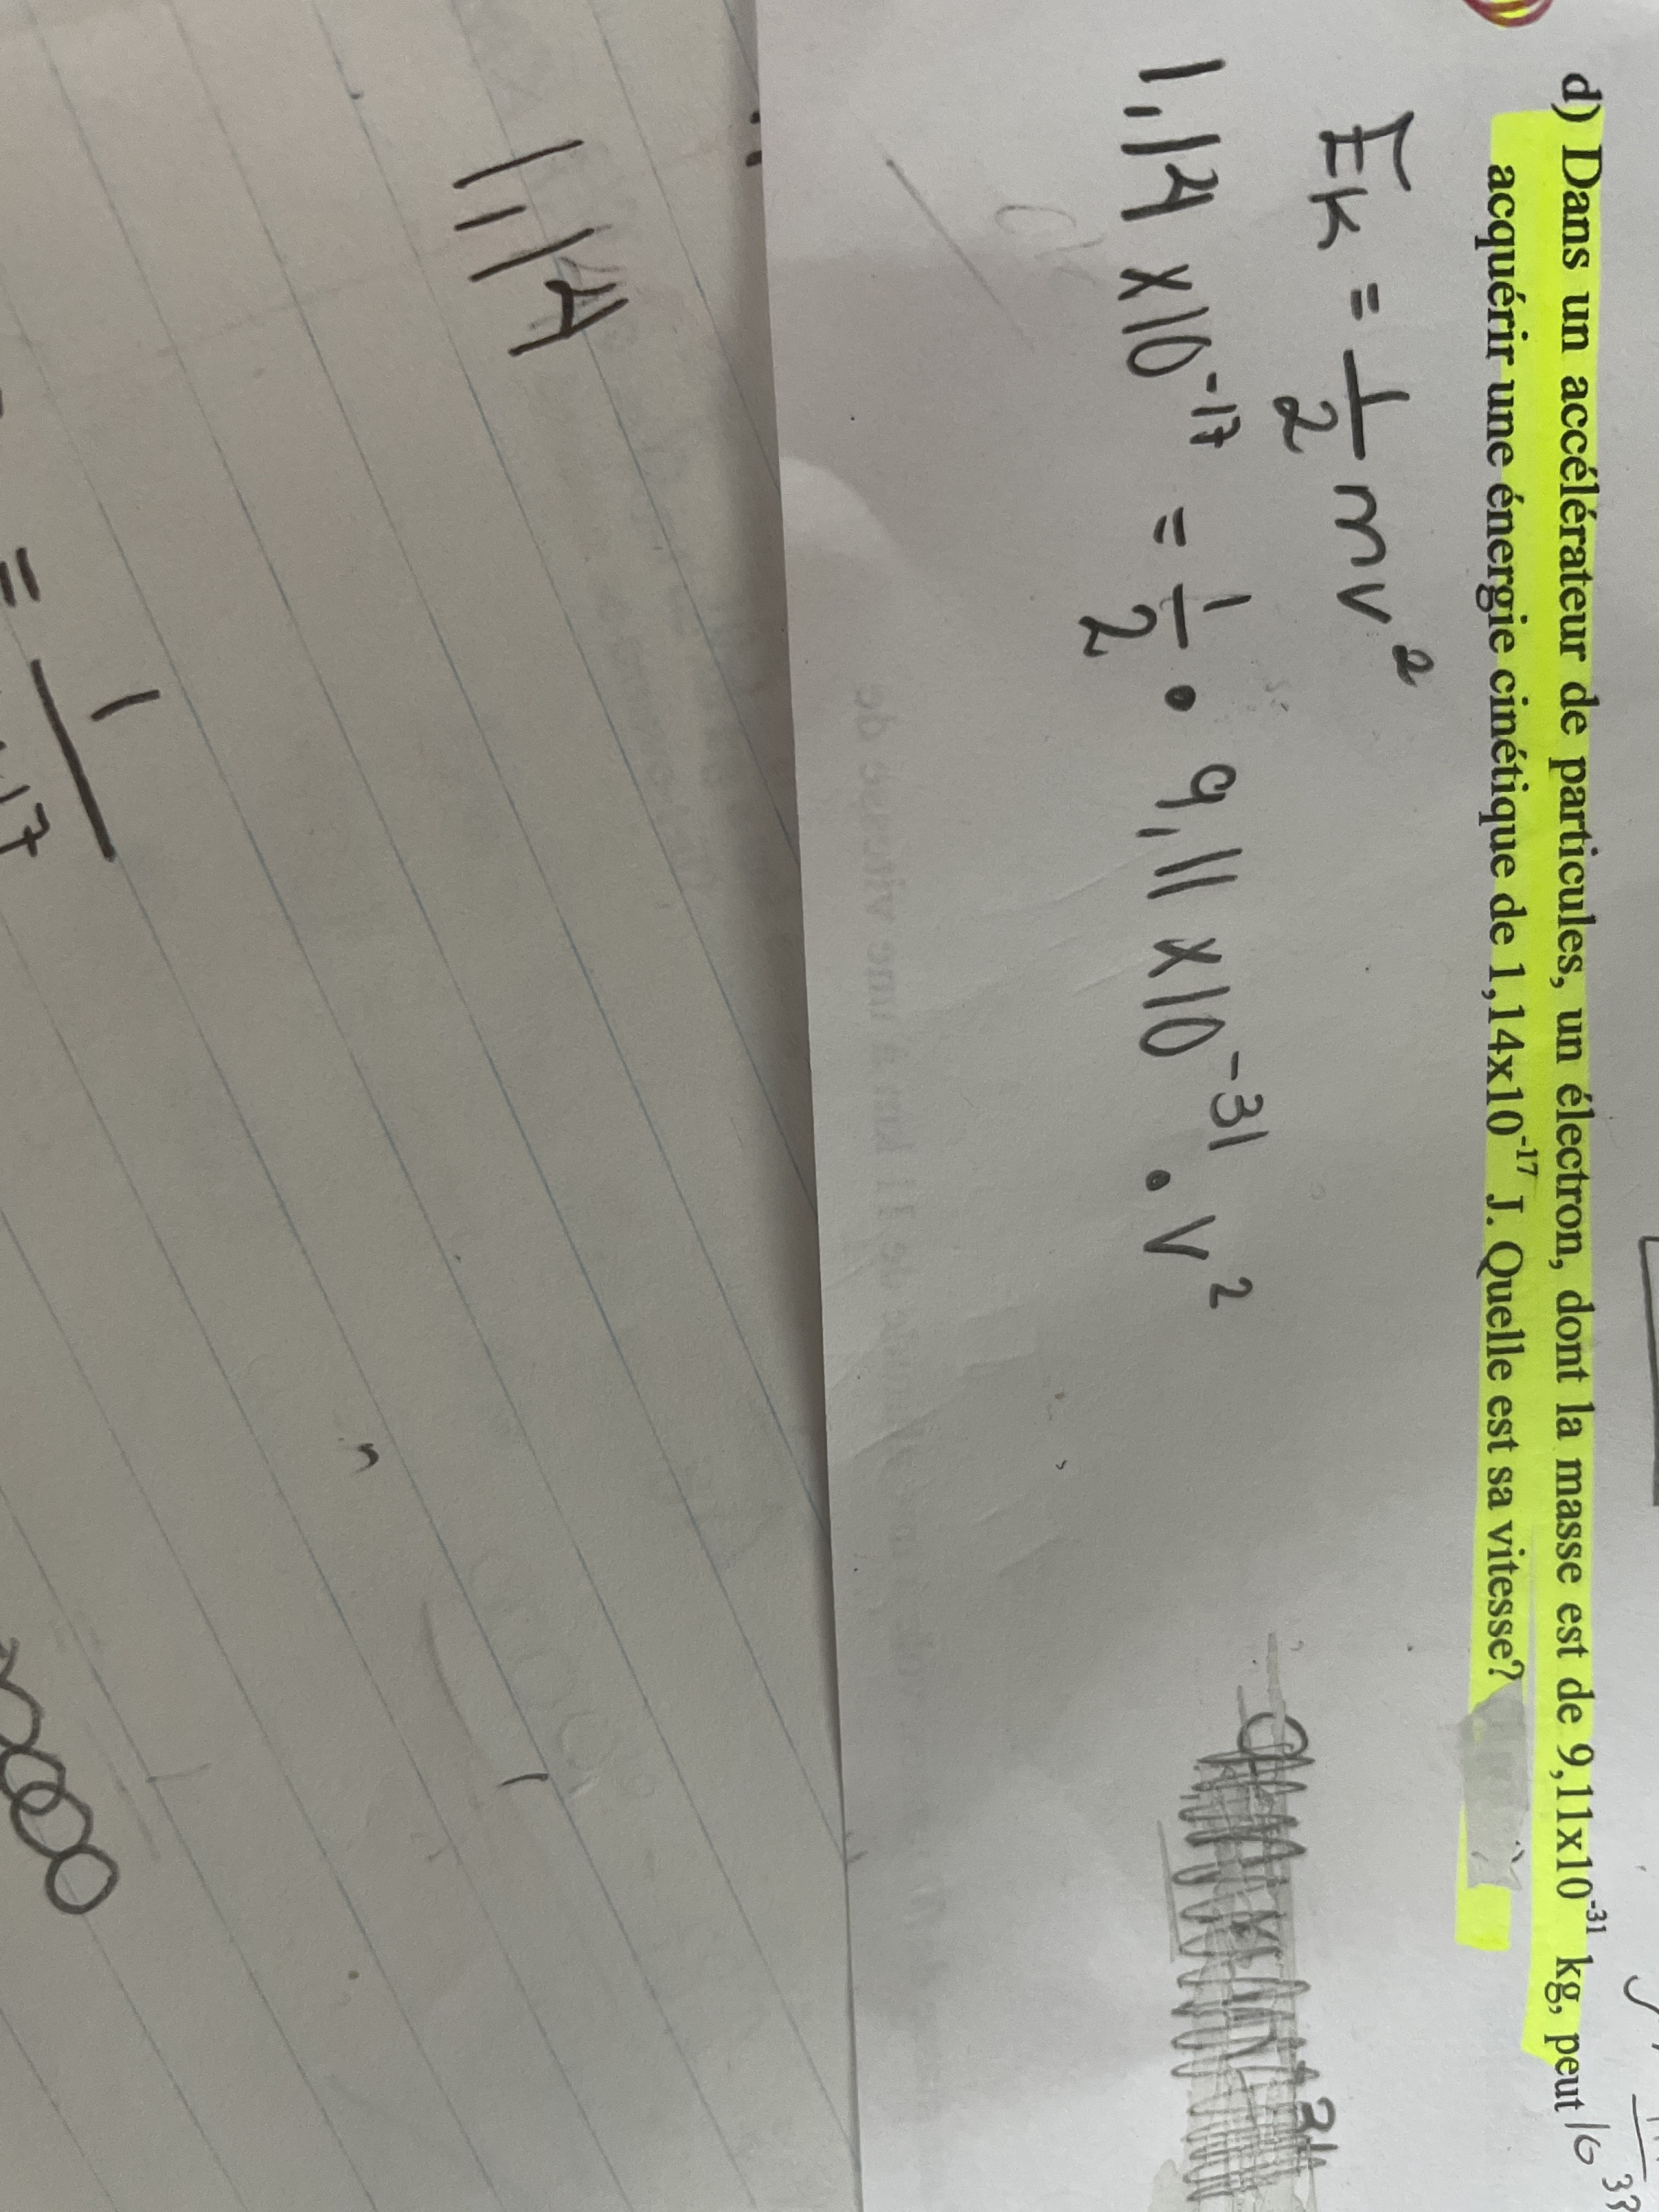 d) Dans un accélérateur de particules, un électron, dont la masse est de 9,11x10⁻³¹ kg, peut
acquérir une énergie cinétique de 1,14x10⁻¹⁷ J. Quelle est sa vitesse?
Ek = 1/2 mv²
1,14 x10⁻¹⁷ = 1/2 • 9,11 x10⁻³¹ • v²
1,14
= 1
17